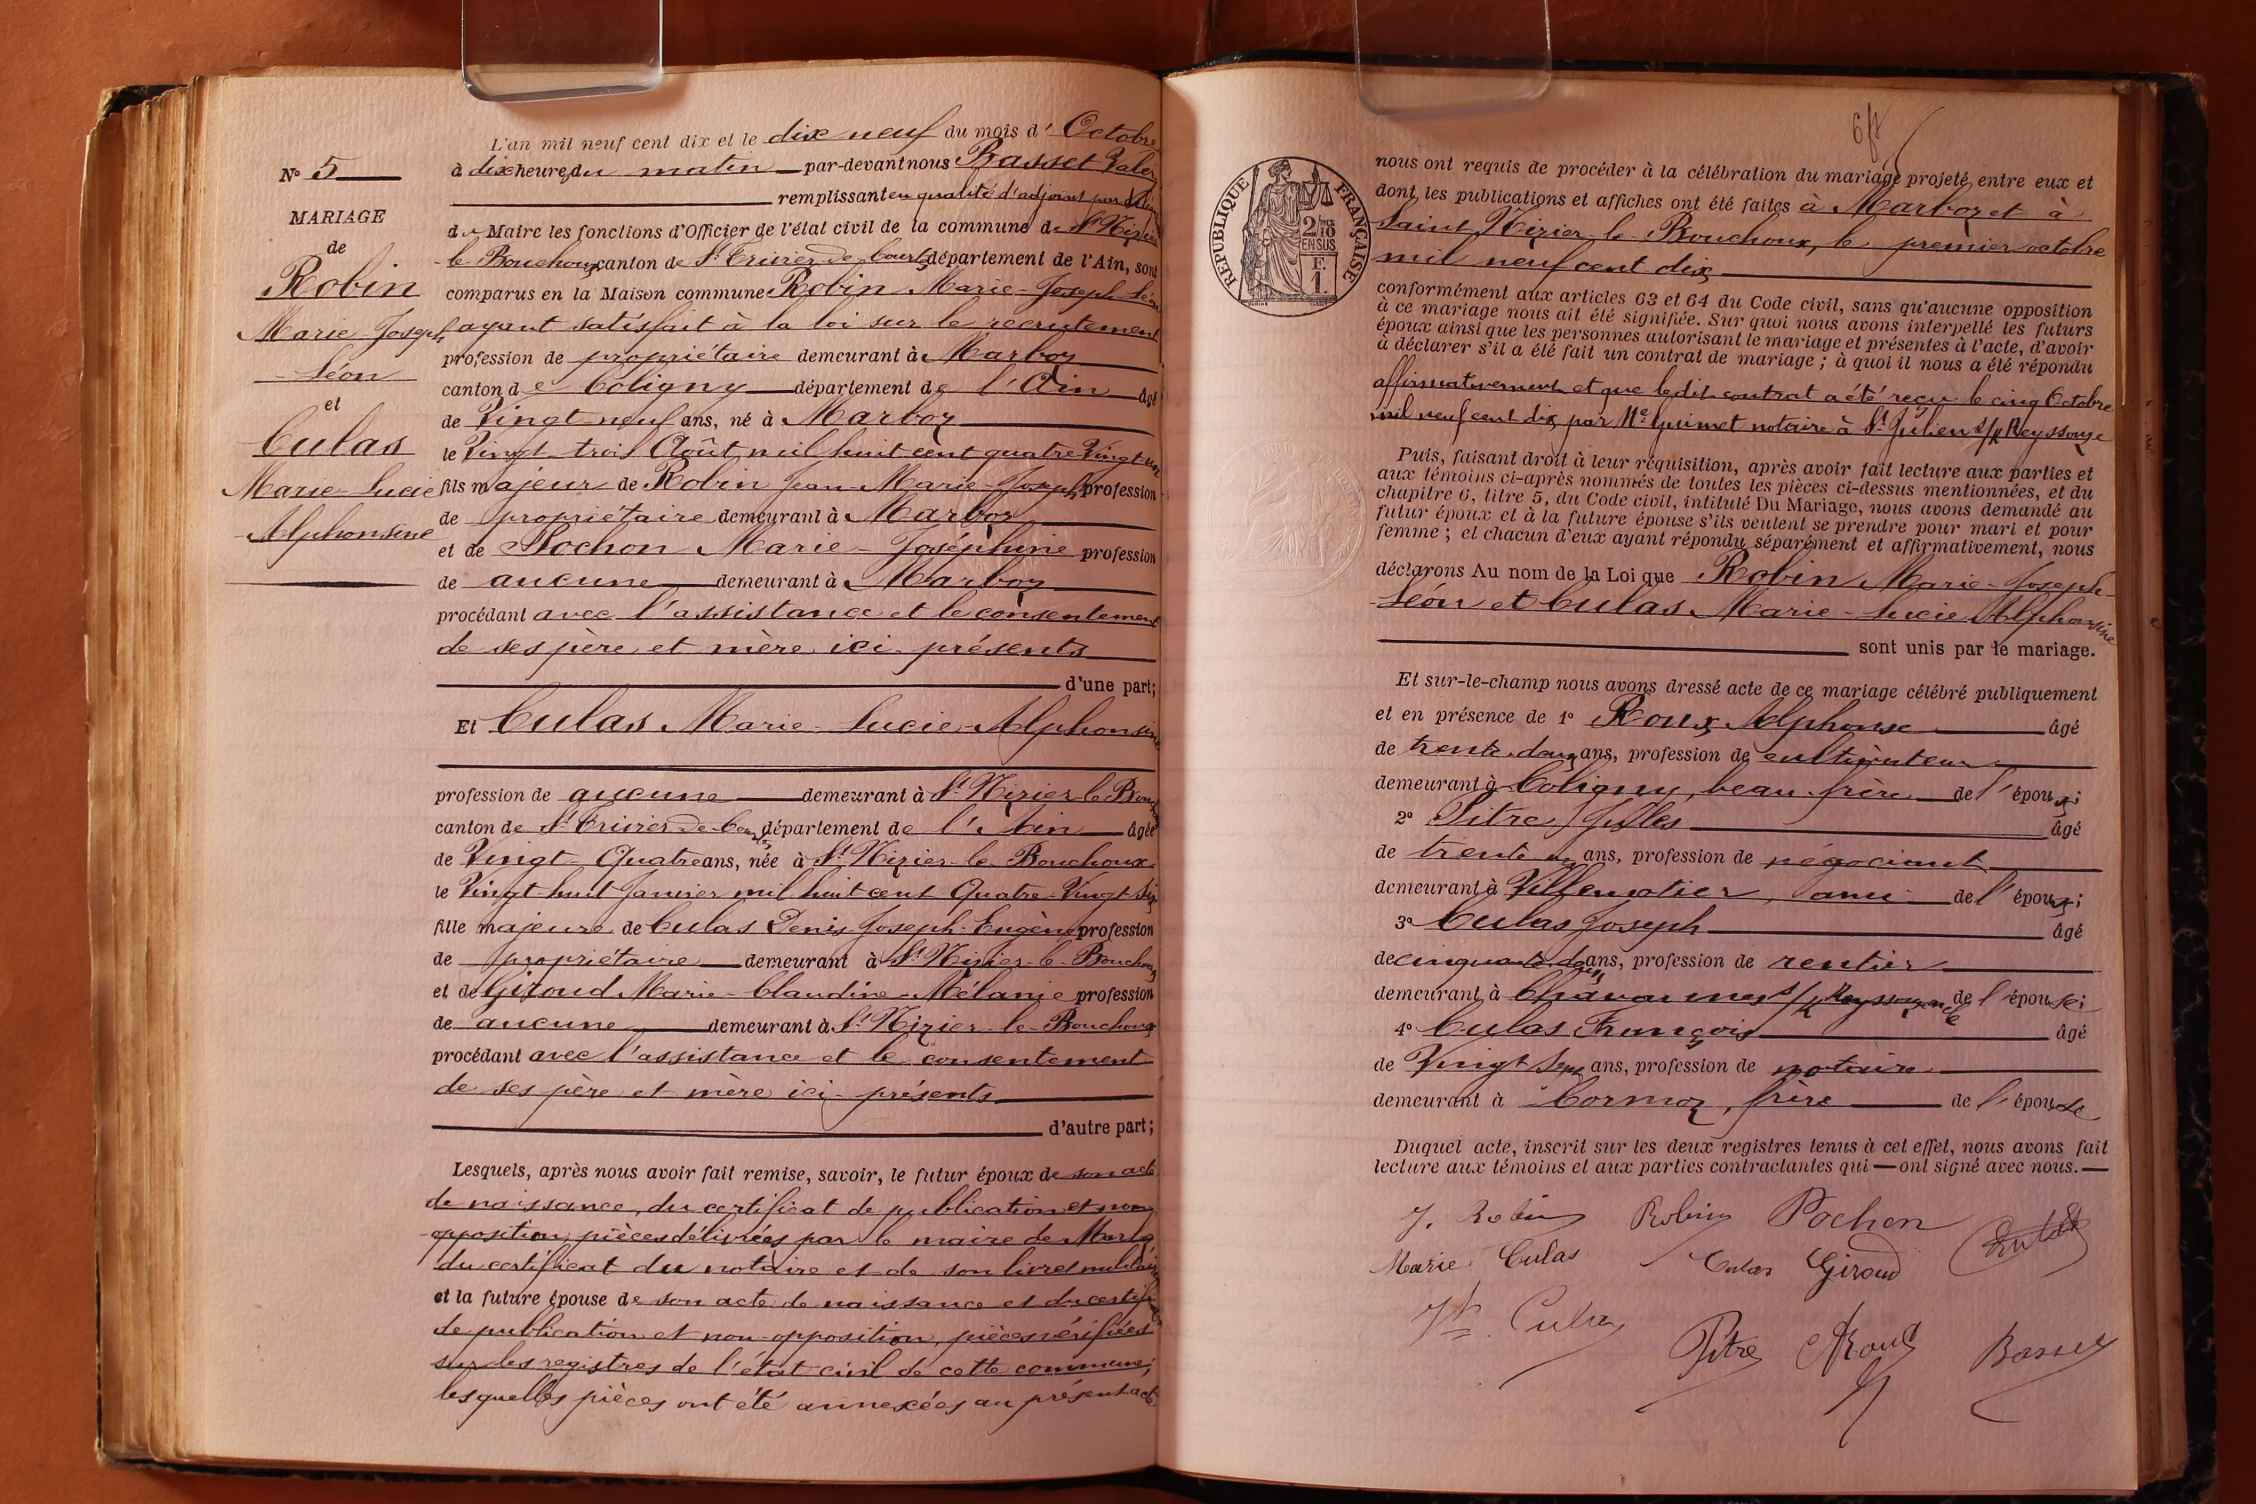 L'an mil neuf cent dix et le dix neuf du mois d'Octobre
N° 5
à dix heures du matin par-devant nous Basset Valéry
remplissant en qualité d'adjoint par
MARIAGE
du Maire les fonctions d'Officier de l'état civil de la commune de St Nizier
de
le Bouchoux canton de St Trivier de Courtes département de l'Ain, sont
Robin
comparus en la Maison commune Robin Marie-Joseph Léon
Marie Joseph
ayant satisfait à la loi sur le recrutement
profession de propriétaire demeurant à Marboz
Léon
canton de Coligny département de l'Ain âgé
et
de Vingt neuf ans, né à Marboz
Culas
le Vingt trois Août mil huit cent quatre Vingt un
Marie-Lucie
fils majeur de Robin Jean-Marie-Joseph profession
Alphonsine
de propriétaire demeurant à Marboz
et de Pochon Marie-Joséphine profession
de aucune demeurant à Marboz
procédant avec l'assistance et le consentement
de ses père et mère ici présents
d'une part;
Et Culas Marie-Lucie-Alphonsine
profession de aucune demeurant à St Nizier-le-Bouchoux
canton de St Trivier-de-Courtes département de l'Ain âgée
de Vingt-Quatre ans, née à St Nizier-le-Bouchoux
le Vingt-huit Janvier mil huit cent Quatre-Vingt-Six
fille majeure de Culas Denis Joseph Eugène profession
de propriétaire demeurant à St Nizier-le-Bouchoux
et de Giroud Marie-Claudine-Mélanie profession
de aucune demeurant à St Nizier-le-Bouchoux
procédant avec l'assistance et le consentement
de ses père et mère ici présents
d'autre part;
Lesquels, après nous avoir fait remise, savoir, le futur époux de son acte
de naissance, du certificat de publication et non
opposition, pièces délivrées par le maire de Marboz
du certificat du notaire et de son livret militaire
et la future épouse de son acte de naissance et du certificat
de publication et non-opposition, pièces vérifiées
sur les registres de l'état civil de cette commune;
lesquelles pièces ont été annexées au présent acte
RÉPUBLIQUE FRANÇAISE
2/10
EN SUS
F.
1.
nous ont requis de procéder à la célébration du mariage projeté entre eux et
dont les publications et affiches ont été faites à Marboz et à
Saint Nizier-le-Bouchoux, le premier octobre
mil neuf cent dix
conformément aux articles 63 et 64 du Code civil, sans qu'aucune opposition
à ce mariage nous ait été signifiée. Sur quoi nous avons interpellé les futurs
époux ainsi que les personnes autorisant le mariage et présentes à l'acte, d'avoir
à déclarer s'il a été fait un contrat de mariage; à quoi il nous a été répondu
affirmativement et que ledit contrat a été reçu le cinq Octobre
mil neuf cent dix par Me Guimet notaire à St Julien s/ Reyssouze
Puis, faisant droit à leur réquisition, après avoir fait lecture aux parties et
aux témoins ci-après nommés de toutes les pièces ci-dessus mentionnées, et du
chapitre 6, titre 5, du Code civil, intitulé Du Mariage, nous avons demandé au
futur époux et à la future épouse s'ils veulent se prendre pour mari et pour
femme; et chacun d'eux ayant répondu séparément et affirmativement, nous
déclarons Au nom de la Loi que Robin Marie-Joseph
Léon et Culas Marie-Lucie Alphonsine
sont unis par le mariage.
Et sur-le-champ nous avons dressé acte de ce mariage célébré publiquement
et en présence de 1° Roux Alphonse âgé
de trente-deux ans, profession de cultivateur
demeurant à Coligny, beau-frère de l'époux;
2° Pitre Jules âgé
de trente ans, profession de négociant
demeurant à Villemotier, ami de l'époux;
3° Culas Joseph âgé
de cinquante-deux ans, profession de rentier
demeurant à Chavannes s/ Reyssouze oncle de l'épouse;
4° Culas François âgé
de Vingt sept ans, profession de notaire
demeurant à Cormoz, frère de l'épouse
Duquel acte, inscrit sur les deux registres tenus à cet effet, nous avons fait
lecture aux témoins et aux parties contractantes qui — ont signé avec nous. —
J. Robin Robin Pochon
Marie Culas Culas Giroud Culas
Jh Culas
Pitre A Roux Basset